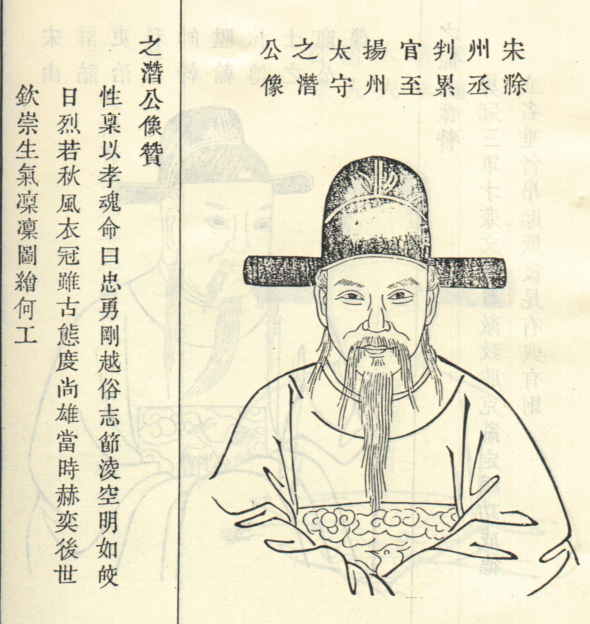 宋滁
州丞
判累
官至
揚州
太守
之潛
公像
之潛公像贊
性稟以孝魂命曰忠勇剛越俗志節淩空明如皎
日烈若秋風衣冠雖古態度尚雄當時赫奕後世
欽崇生氣凜凜圖繪何工